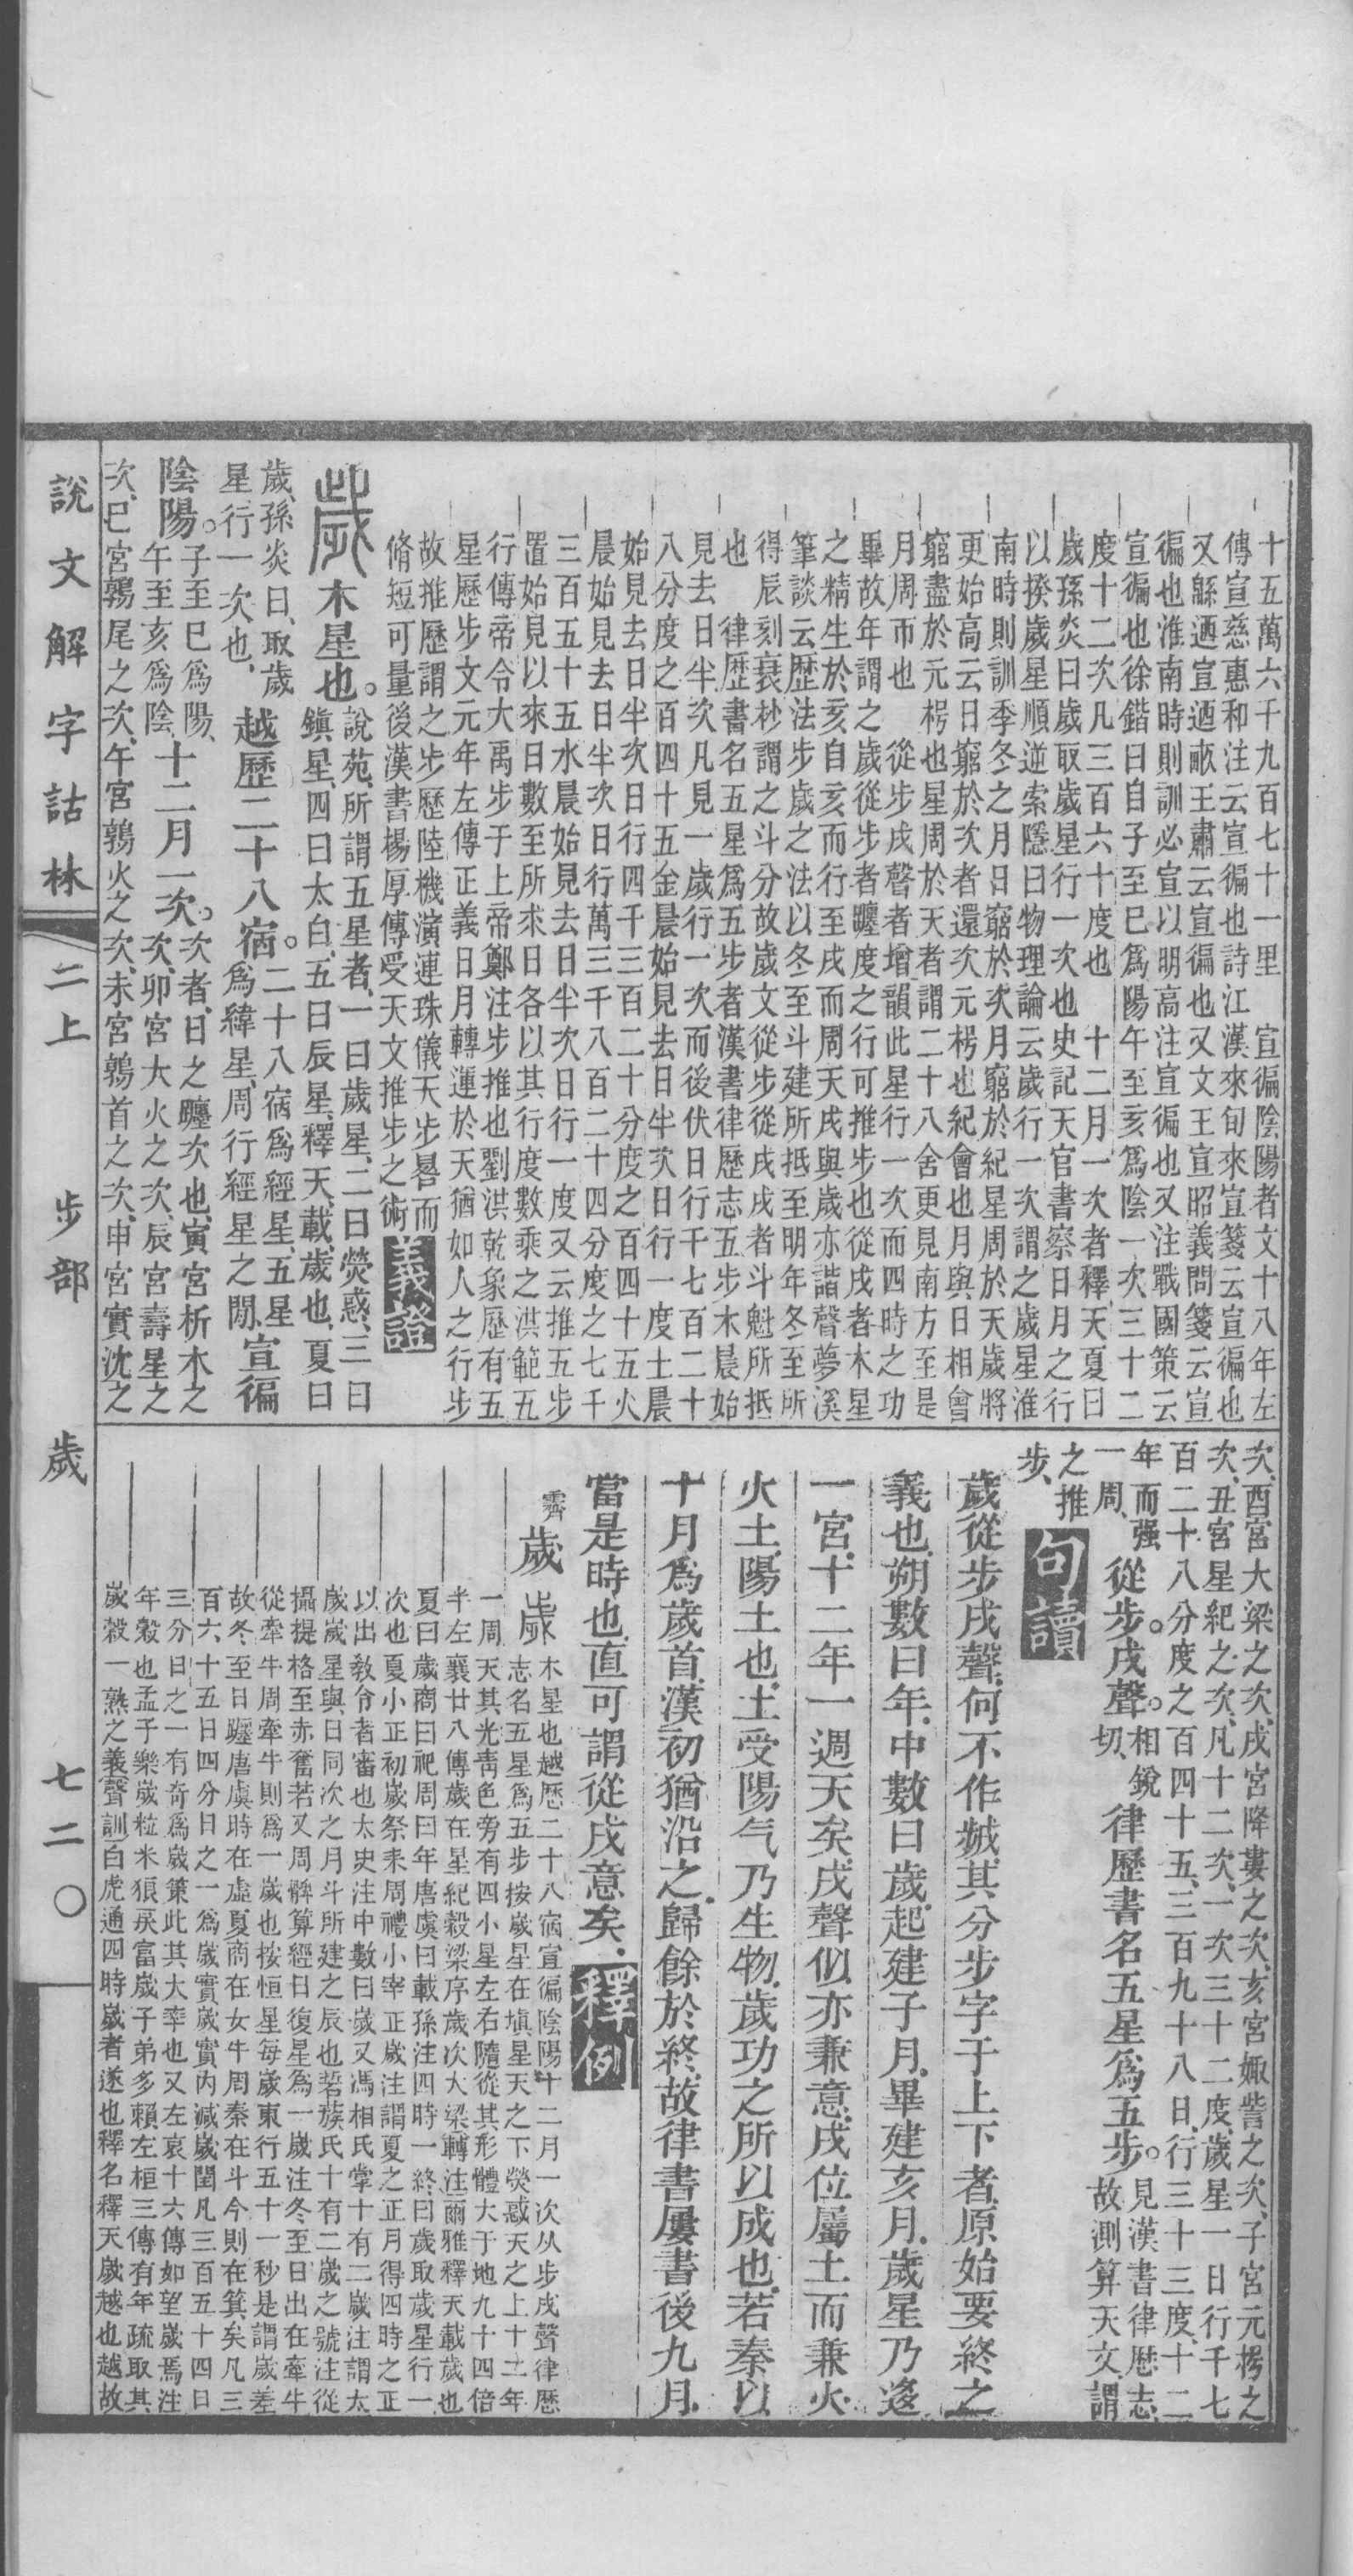 十五萬六千九百七十一里　宣徧陰陽者文十八年左
傳宣慈惠和注云宣徧也詩江漢來旬來宣箋云宣徧也
又緜迺宣迺畝王肅云宣徧也又文王宣昭義問箋云宣
徧也淮南時則訓必宣以明高注宣徧也又注戰國策云
宣徧也徐鍇曰自子至巳爲陽午至亥爲陰一次三十二
度十二次凡三百六十度也　十二月一次者釋天夏曰
歲孫炎曰歲取歲星行一次也　史記天官書察日月之行
以揆歲星順逆索隱曰物理論云歲行一次謂之歲星淮
南時則訓季冬之月日窮於次月窮於紀星周於天歲將
更始高云日窮於次者還次元枵也紀會也月與日相會
窮盡於元枵也星周於天者謂二十八舍更見南方至是
月周帀也　從步戌聲者增韻此星行一次而四時之功
畢故年謂之歲從步者躔度之行可推步也從戌者木星
之精生於亥自亥而行至戌而周天戌與歲亦諧聲夢溪
筆談云歴法步歲之法以冬至斗建所抵至明年冬至所
得辰刻衰杪謂之斗分故歲文從步從戌戌者斗魁所抵
也　律歴書名五星爲五步者漢書律歷志五步木晨始
見去日半次凡見一歲行一次而後伏日行千七百二十
八分度之百四十五金晨始見去日半次日行一度土晨
始見去日半次日行四千三百二十分度之百四十五火
晨始見去日半次日行萬三千八百二十四分度之七千
三百五十五水晨始見去日半次日行一度又云推五步
置始見以來日數至所求日各以其行度數乘之洪範五
行傳帝令大禹步于上帝鄭注步推也劉洪乾象歷有五
星歷步文元年左傳正義日月轉運於天猶如人之行步
故推歷謂之步歷陸機演連珠儀天步晷而
脩短可量後漢書楊厚傳受天文推步之術義證
歲木星也。說苑、所謂五星者、一曰歲星、二曰熒惑、三曰
鎮星、四曰太白、五曰辰星、釋天、載、歲也、夏曰
歲、孫炎曰、取歲
星行一次也、越歷二十八宿。二十八宿爲經星、五星
爲緯星、周行經星之閒、宣徧
陰陽。子至巳爲陽、
午至亥爲陰、十二月一次。次者、日之躔次也、寅宮析木之
次、卯宮大火之次、辰宮壽星之
次、巳宮鶉尾之次、午宮鶉火之次、未宮鶉首之次、申宮實沈之
次、酉宮大梁之次、戌宮降婁之次、亥宮娵訾之次、子宮元枵之
次、丑宮星紀之次、凡十二次、一次三十二度、歲星一日行千七
百二十八分度之百四十五、三百九十八日、行三十三度、十二
年而强
一周、從步。戌聲。相銳
切、律歷書名五星爲五步。見漢書律歷志、
故測算天文、謂
之推
步、句讀
歲從步戌聲、何不作䟠、其分步字于上下者、原始要終之
義也、朔數曰年、中數曰歲、起建子月、畢建亥月、歲星乃迻
一宮、十二年一週天矣、戌聲似亦兼意、戌位屬土而兼火、
火土、陽土也、土受陽气乃生物、歲功之所以成也、若秦以
十月爲歲首、漢初猶沿之、歸餘於終、故律書屢書後九月、
當是時也、直可謂從戌意矣、釋例
霽歲歲木星也越歷二十八宿宣徧陰陽十二月一次从步戌聲律歷
志名五星爲五步按歲星在塡星天之下熒惑天之上十二年
一周天其光靑色旁有四小星左右隨從其形體大于地九十四倍
半左襄廿八傳歲在星紀穀梁序歲次大梁轉注爾雅釋天載歲也
夏曰歲商曰祀周曰年唐虞曰載孫注四時一終曰歲取歲星行一
次也夏小正初歲祭耒周禮小宰正歲注謂夏之正月得四時之正
以出教令者審也太史注中數曰歲又馮相氏掌十有二歲注謂太
歲歲星與日同次之月斗所建之辰也硩蔟氏十有二歲之號注從
攝提格至赤奮若又周髀算經日復星爲一歲注冬至日出在牽牛
從牽牛周牽牛則爲一歲也按恒星每歲東行五十一秒是謂歲差
故冬至日躔唐虞時在虛夏商在女牛周秦在斗今則在箕矣凡三
百六十五日四分日之一爲歲實歲實內減歲閏凡三百五十四日
三分日之一有奇爲歲策此其大率也又左哀十六傳如望歲焉注
年穀也孟子樂歲粒米狼戾富歲子弟多賴左桓三傳有年疏取其
歲穀一熟之義聲訓白虎通四時歲者遂也釋名釋天歲越也越故
說文解字詁林　二上　步部　歲　七二〇